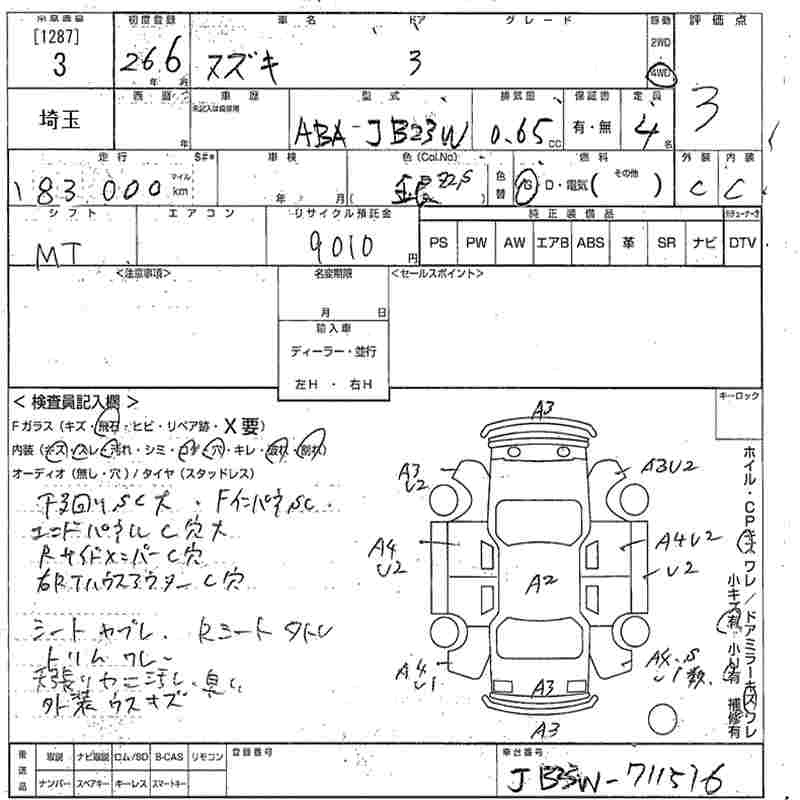 [1287]
3
初度登録
26 6
年 月
車名
スズキ
ドア
3
グレード
駆動
2WD
4WD
評価点
3
埼玉
車歴
型式
ABA-JB23W
排気量
0.65
CC
保証書
有・無
定員
4
名
走行
183,000
マイル
km
S#*
車検
年 月
色(Col.No)
銀 Z2S
色替
燃料
G D・電気( その他 )
外装
C
内装
C
シフト
MT
エアコン
リサイクル預託金
9010
円
純正装備品
PS PW AW エアB ABS 革 SR ナビ DTV
<注意事項>
名変期限
月 日
輸入車
ディーラー・並行
左H ・ 右H
<セールスポイント>
キーロック
<検査員記入欄>
Fガラス(キズ・飛石・ヒビ・リペア跡・X要)
内装(キズ・スレ・汚れ・シミ・コゲ・穴・キレ・破れ・割れ)
オーディオ(無し・穴)/タイヤ(スタッドレス)
下回りSC大・FインパネSC
エンドパネルC穴大
RサイドメンバーC穴
右RTハウスアウターC穴
シートヤブレ、Rシート
トリムワレ
天張りヤニ汚レ・臭い
外装ウスキズ
A3
A3
U2
A3U2
A4
U2
A4U2
U2
A2
A4
U1
A3
A3
ホイル・CPキズワレ/ドアミラーキズワレ
小キズ有 小U有 補修有
後送品
取説 ナビ取説 ロム/SD B-CAS リモコン
ナンバー スペアキー キーレス スマートキー
登録番号
車台番号
JB23W-711576